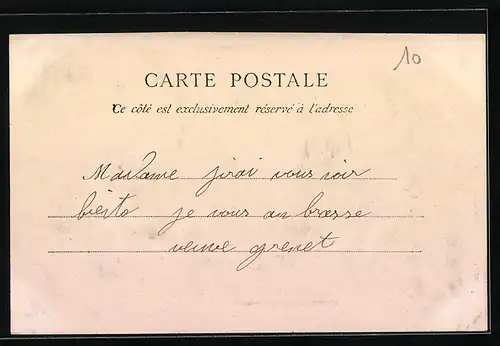 10
CARTE POSTALE
Ce côté est exclusivement réservé à l'adresse
Madame jirai vous voir
biento je vous an brasse
veuve grenet